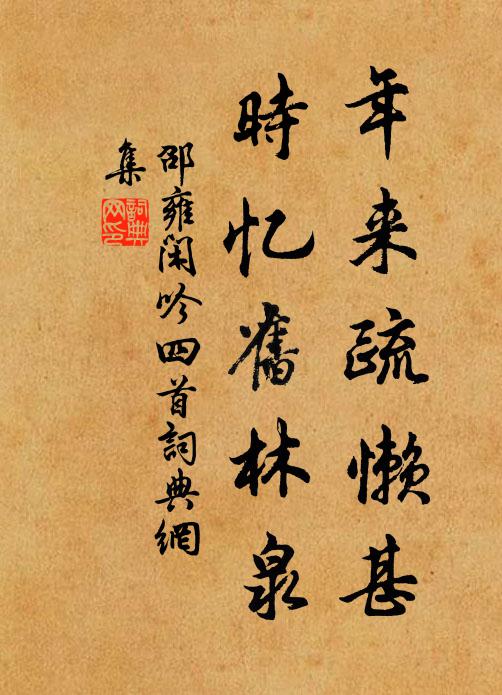 年来疏懒甚
时忆舊林泉
邵雍闲吟四首詞典網
集
詞典
网印